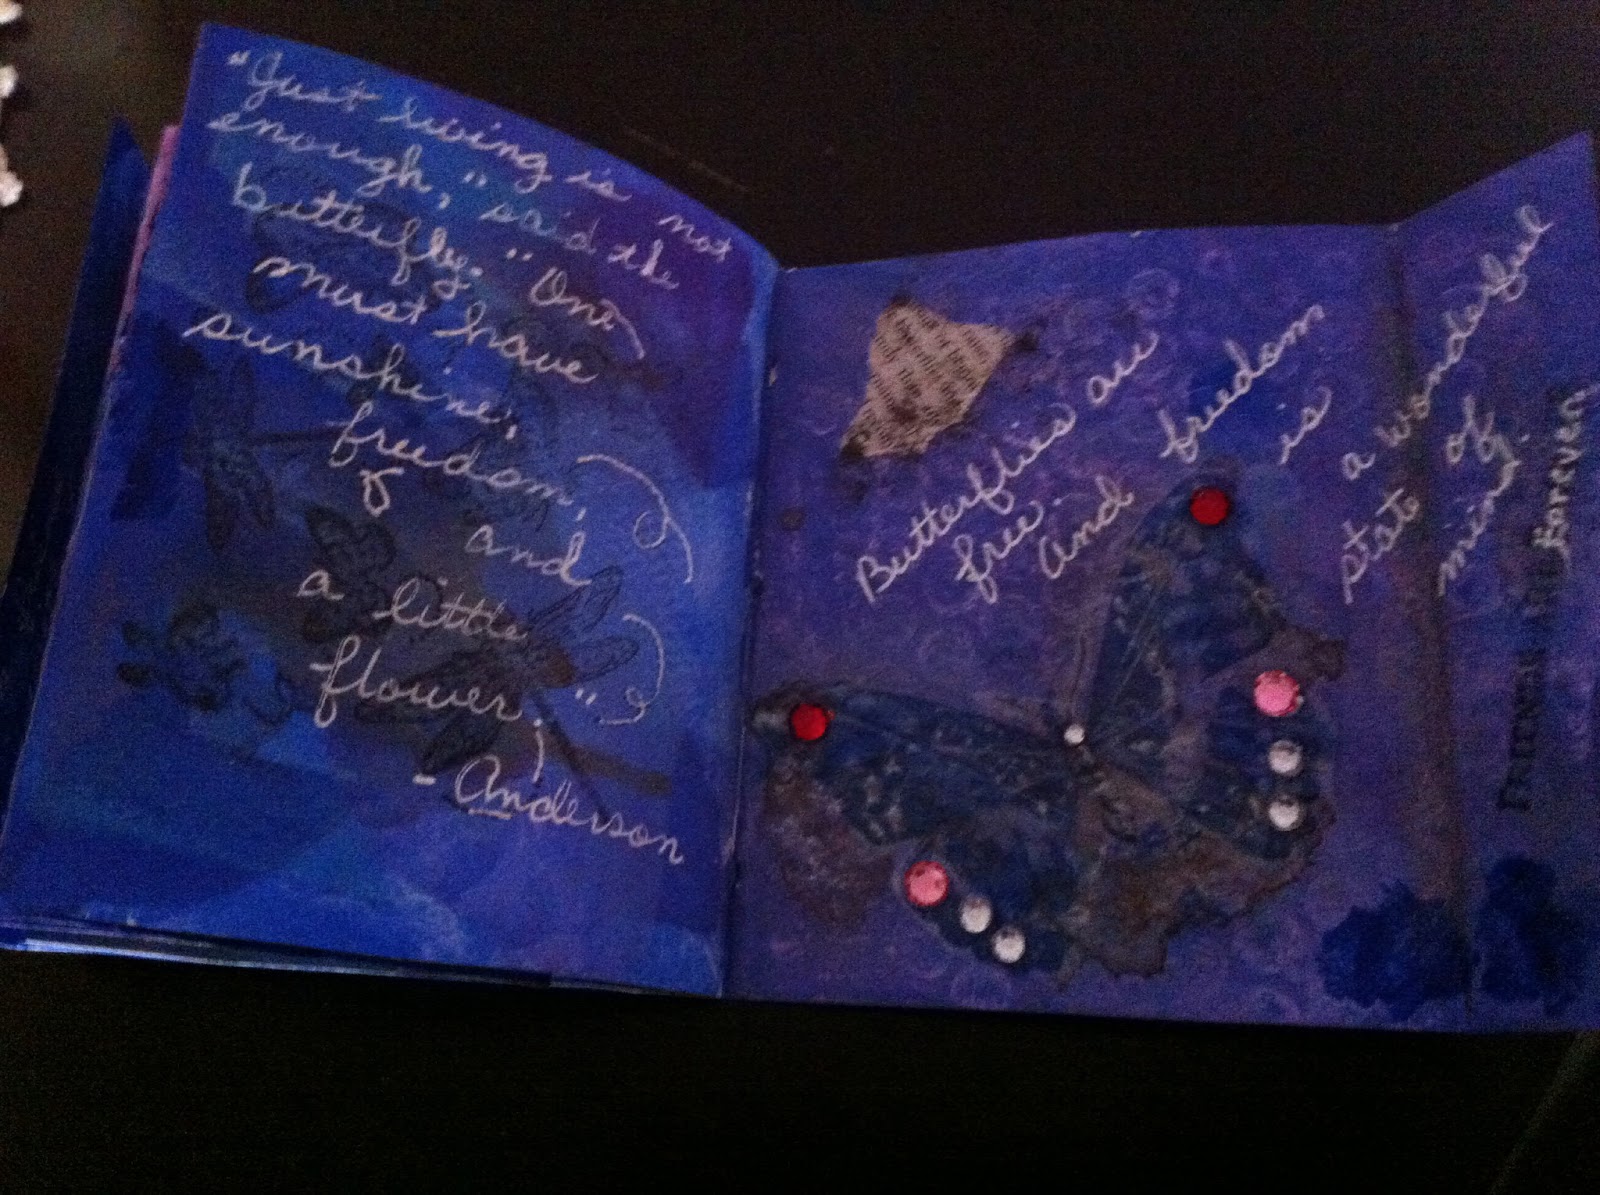 "Just living is not
enough," said the
butterfly. "One
must have
sunshine,
freedom,
and
a little
flower."
- Anderson
Butterflies are
free.
And freedom
is
a wonderful
state of
mind.
Forever